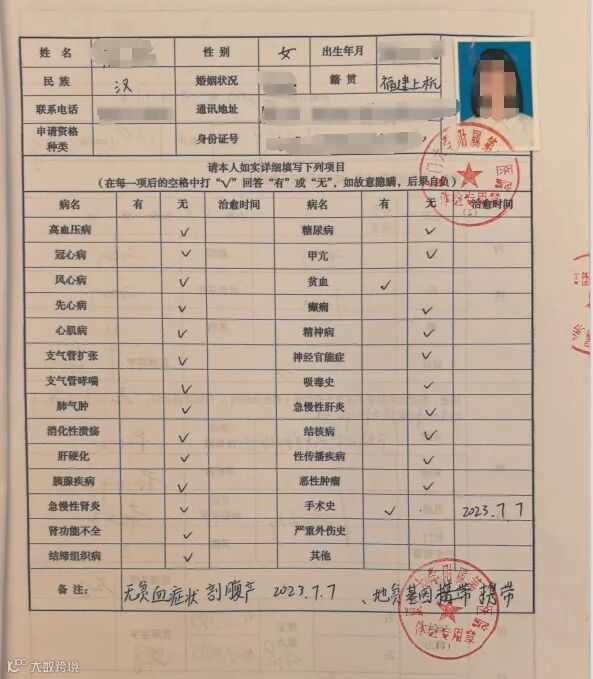 姓 名 性 别 女 出生年月
民 族 汉 婚姻状况 籍 贯 福建上杭
联系电话 通讯地址
申请资格种类 身份证号
请本人如实详细填写下列项目
(在每一项后的空格中打“√”回答“有”或“无”,如故意隐瞒,后果自负)
病名 有 无 治愈时间 病名 有 无 治愈时间
高血压病 ✓ 糖尿病 ✓
冠心病 ✓ 甲亢 ✓
风心病 ✓ 贫血 ✓
先心病 ✓ 癫痫 ✓
心肌病 ✓ 精神病 ✓
支气管扩张 ✓ 神经官能症 ✓
支气管哮喘 ✓ 吸毒史 ✓
肺气肿 ✓ 急慢性肝炎 ✓
消化性溃疡 ✓ 结核病 ✓
肝硬化 ✓ 性传播疾病 ✓
胰腺疾病 ✓ 恶性肿瘤 ✓
急慢性肾炎 ✓ 手术史 ✓ 2023.7.7
肾功能不全 ✓ 严重外伤史
结缔组织病 ✓ 其他
备 注: 无贫血症状 剖腹产 2023.7.7 、地贫基因携带 携带
体检专用章
体检专用章
大数跨境